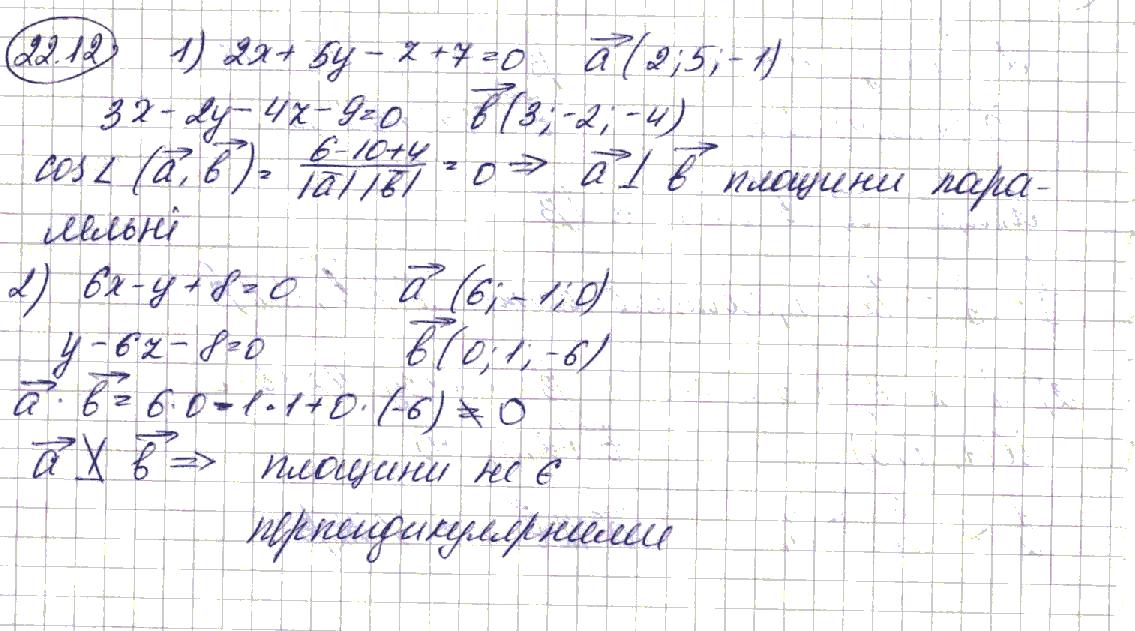 22.12 1) 2x + 5y - z + 7 = 0 a⃗ (2; 5; -1)
3x - 2y - 4z - 9 = 0 b⃗ (3; -2; -4)
cos∠ (a⃗, b⃗) = (6 - 10 + 4)/(|a⃗| |b⃗|) = 0 ⇒ a⃗ ⊥ b⃗ площини пара-
лельні
2) 6x - y + 8 = 0 a⃗ (6; -1; 0)
y - 6z - 8 = 0 b⃗ (0; 1; -6)
a⃗ · b⃗ = 6 · 0 - 1 · 1 + 0 · (-6) ≠ 0
a⃗ ⊥̸ b⃗ ⇒ площини не є
перпендикулярними